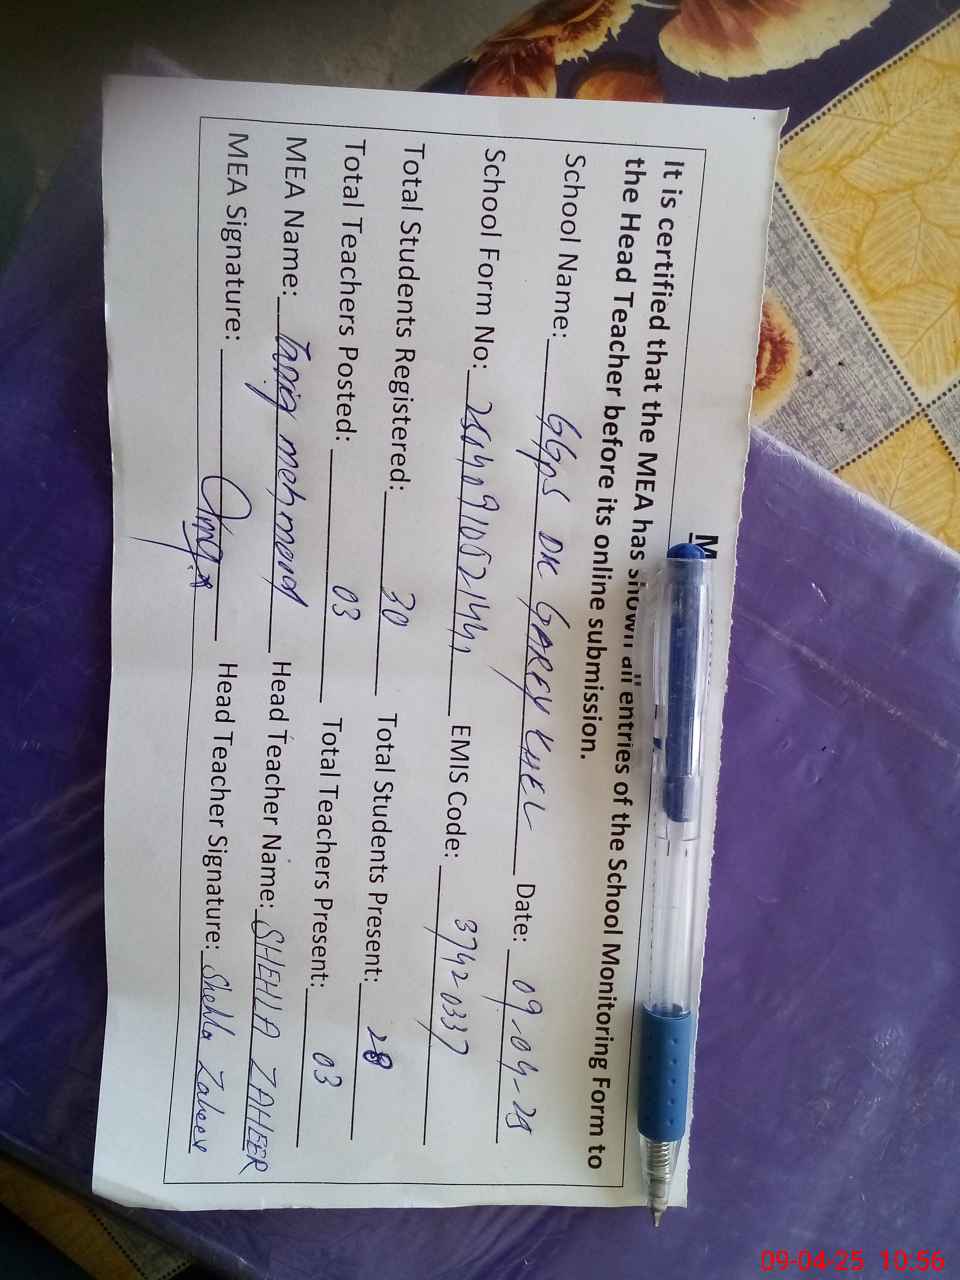 M
It is certified that the MEA has shown all entries of the School Monitoring Form to
the Head Teacher before its online submission.
School Name: GGPS DK GAREY KHEL Date: 09-04-25
School Form No: EMIS Code: 37420337
Total Students Registered: 30 Total Students Present: 28
Total Teachers Posted: 03 Total Teachers Present: 03
MEA Name: Tariq mehmood Head Teacher Name: SHEHLA ZAHEER
MEA Signature: Head Teacher Signature: Shehla Zaheer
09-04-25 10:56